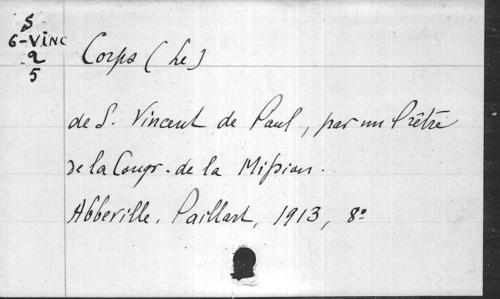 S
6-VINC
2
5
Corps (Le)
de S. Vincent de Paul, par un Prêtre
de la Congr. de la Mission.
Abbeville, Paillart, 1913, 8º